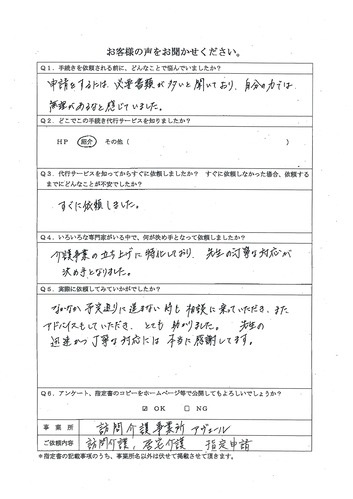 お客様の声をお聞かせください。
Q1．手続きを依頼される前に、どんなことで悩んでいましたか？
申請をするには、必要書類が多いと聞いており、自分の力では
無理があるなと感じていました。
Q2．どこでこの手続き代行サービスを知りましたか？
HP 紹介 その他（ ）
Q3．代行サービスを知ってからすぐに依頼しましたか？ すぐに依頼しなかった場合、依頼する
までにどんなことが不安でしたか？
すぐに依頼しました。
Q4．いろいろな専門家がいる中で、何が決め手となって依頼しましたか？
介護事業の立ち上げに特化しており、先生の丁寧な対応が
決め手となりました。
Q5．実際に依頼してみていかがでしたか？
なかなか予定通りに進まない時も相談に乗っていただき、また
アドバイスもしていただき、とても助かりました。 先生の
迅速かつ丁寧な対応には本当に感謝してます。
Q6．アンケート、指定書のコピーをホームページ等で公開してもよろしいでしょうか？
☑ OK □ NG
事業所 訪問介護事業所 アヴェール
ご依頼内容 訪問介護、居宅介護 指定申請
＊指定書の記載事項のうち、事業所名以外は伏せて掲載させて頂きます。